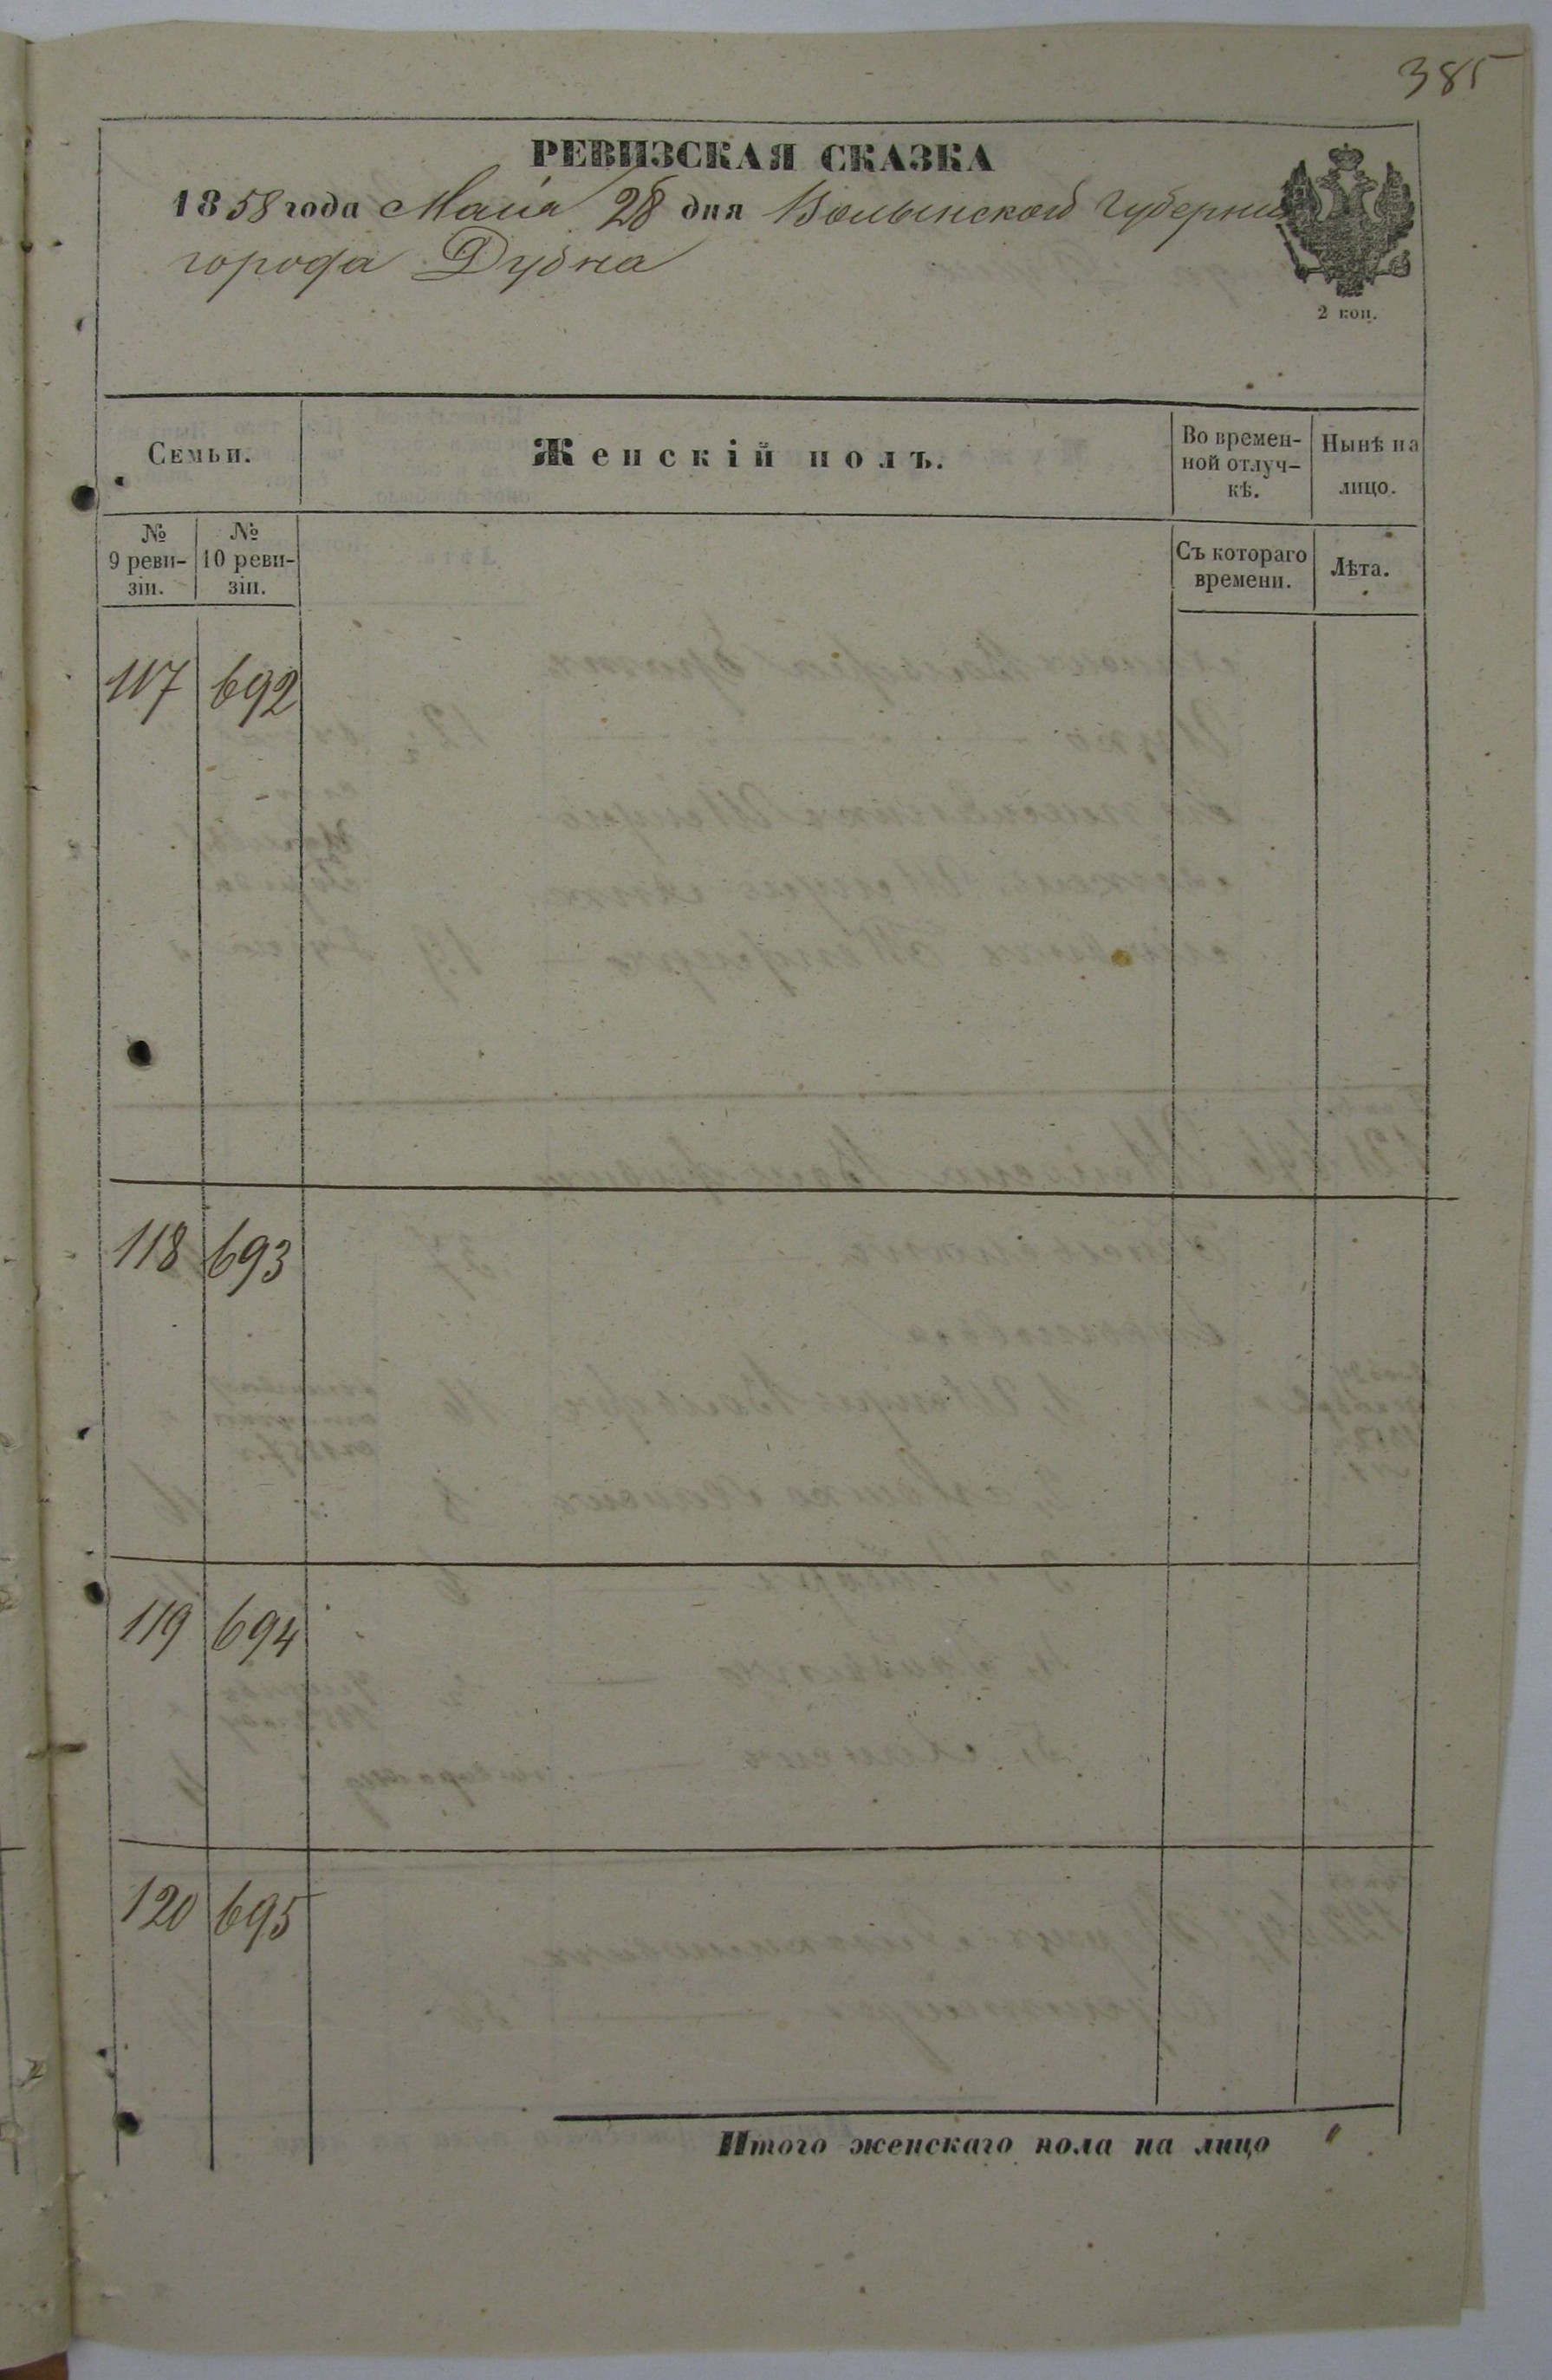 385
РЕВИЗСКАЯ СКАЗКА
1858 года Маія 28 дня Волынской Губерніи
города Дубна
2 коп.
Семьи.
Женскій полъ.
Во времен-
ной отлуч-
кѣ.
Нынѣ на
лицо.
№
9 реви-
зіи.
№
10 реви-
зіи.
Съ котораго
времени.
Лѣта.
117 692
118 693
119 694
120 695
Итого женскаго пола на лицо "